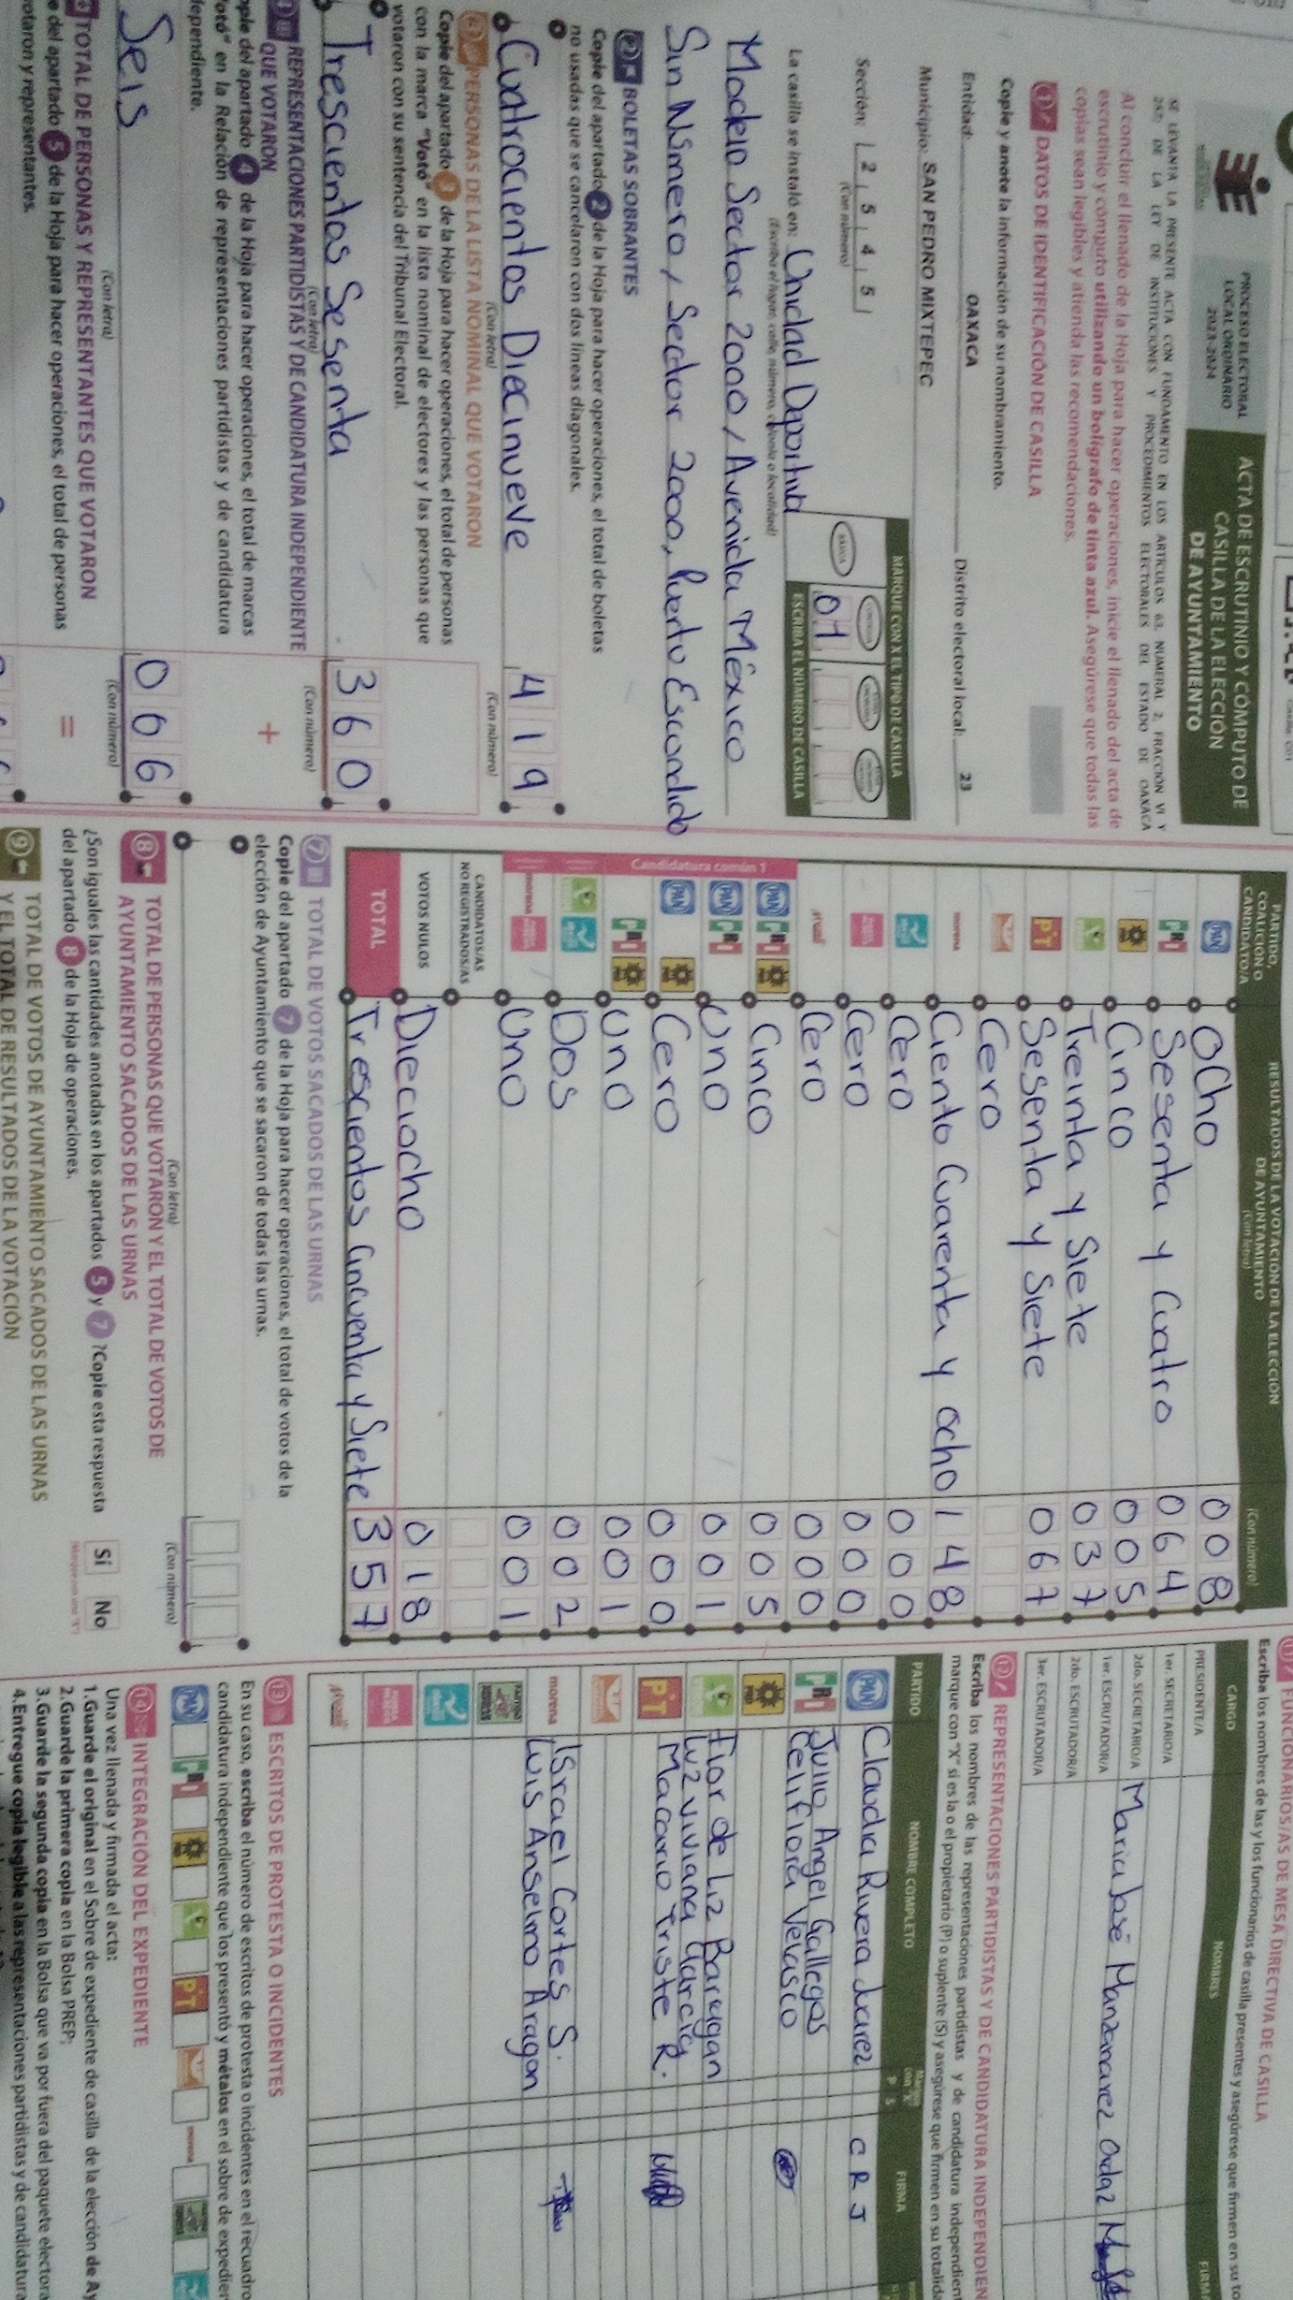 PROCESO ELECTORAL
LOCAL ORDINARIO
2023-2024
ACTA DE ESCRUTINIO Y CÓMPUTO DE
CASILLA DE LA ELECCIÓN
DE AYUNTAMIENTO
SE LEVANTA LA PRESENTE ACTA CON FUNDAMENTO EN LOS ARTÍCULOS 63, NUMERAL 2, FRACCIÓN VI Y
257; DE LA LEY DE INSTITUCIONES Y PROCEDIMIENTOS ELECTORALES DEL ESTADO DE OAXACA
Al concluir el llenado de la Hoja para hacer operaciones, inicie el llenado del acta de
escrutinio y cómputo utilizando un bolígrafo de tinta azul. Asegúrese que todas las
copias sean legibles y atienda las recomendaciones.
1 DATOS DE IDENTIFICACIÓN DE CASILLA
Copie y anote la información de su nombramiento.
Entidad: OAXACA Distrito electoral local: 23
Municipio: SAN PEDRO MIXTEPEC
Sección: 2 5 4 5
(Con número)
MARQUE CON X EL TIPO DE CASILLA
BÁSICA
ESCRIBA EL NÚMERO DE CASILLA
01
La casilla se instaló en: Unidad Deportiva
(Escriba el lugar, calle, número, colonia o localidad)
Modelo Sector 2000, Avenida México
Sin Número, Sector 2000, Puerto Escondido
2 BOLETAS SOBRANTES
Copie del apartado 2 de la Hoja para hacer operaciones, el total de boletas
no usadas que se cancelaron con dos líneas diagonales.
Cuatrocientos Diecinueve 419
(Con letra) (Con número)
3 PERSONAS DE LA LISTA NOMINAL QUE VOTARON
Copie del apartado 3 de la Hoja para hacer operaciones, el total de personas
con la marca "Votó" en la lista nominal de electores y las personas que
votaron con su sentencia del Tribunal Electoral.
Trescientos Sesenta 360
(Con letra) (Con número)
REPRESENTACIONES PARTIDISTAS Y DE CANDIDATURA INDEPENDIENTE
QUE VOTARON +
Copie del apartado 4 de la Hoja para hacer operaciones, el total de marcas
"Votó" en la Relación de representaciones partidistas y de candidatura
independiente.
Seis 006
(Con letra) (Con número)
TOTAL DE PERSONAS Y REPRESENTANTES QUE VOTARON =
del apartado 5 de la Hoja para hacer operaciones, el total de personas
votaron y representantes.
PARTIDO,
COALICIÓN O
CANDIDATO/A
RESULTADOS DE LA VOTACIÓN DE LA ELECCIÓN
DE AYUNTAMIENTO
(Con letra)
(Con número)
PAN Ocho 008
PRI Sesenta y Cuatro 064
PRD Cinco 005
Treinta y Siete 037
PT Sesenta y Siete 067
Cero
morena Ciento Cuarenta y ocho 148
Cero 000
Cero 000
Cero 000
Candidatura común 1
PAN PRI PRD Cinco 005
PAN PRI Uno 001
PAN PRD Cero 000
PRI PRD Uno 001
Dos 002
morena Uno 001
CANDIDATOS/AS
NO REGISTRADOS/AS
VOTOS NULOS Dieciocho 018
TOTAL Trescientos Cincuenta y Siete 357
7 TOTAL DE VOTOS SACADOS DE LAS URNAS
Copie del apartado 7 de la Hoja para hacer operaciones, el total de votos de la
elección de Ayuntamiento que se sacaron de todas las urnas.
(Con letra) (Con número)
8 TOTAL DE PERSONAS QUE VOTARON Y EL TOTAL DE VOTOS DE
AYUNTAMIENTO SACADOS DE LAS URNAS
¿Son iguales las cantidades anotadas en los apartados 5 y 7 ?Copie esta respuesta
del apartado 8 de la Hoja de operaciones.
Sí No
9 TOTAL DE VOTOS DE AYUNTAMIENTO SACADOS DE LAS URNAS
Y EL TOTAL DE RESULTADOS DE LA VOTACIÓN
11 FUNCIONARIOS/AS DE MESA DIRECTIVA DE CASILLA
Escriba los nombres de las y los funcionarios de casilla presentes y asegúrese que firmen en su to
CARGO NOMBRES FIRMA
PRESIDENTE/A
1er. SECRETARIO/A
2do. SECRETARIO/A Maria José Manzanarez Ordaz
1er. ESCRUTADOR/A
2do. ESCRUTADOR/A
3er. ESCRUTADOR/A
12 REPRESENTACIONES PARTIDISTAS Y DE CANDIDATURA INDEPENDIEN
Escriba los nombres de las representaciones partidistas y de candidatura independient
marque con "X" si es la o el propietario (P) o suplente (S) y asegúrese que firmen en su totalida
PARTIDO NOMBRE COMPLETO P S FIRMA
PAN Claudia Rivera Juarez CRJ
PRI Julio Angel Gallegos
Celiflora Velasco
PRD
Flor de Liz Barragan
Luz Viviana Garcia
PT Macario Triste R.
morena Israel Cortes S.
Luis Anselmo Aragon
13 ESCRITOS DE PROTESTA O INCIDENTES
En su caso, escriba el número de escritos de protesta o incidentes en el recuadro
candidatura independiente que los presentó y métalos en el sobre de expedien
PAN PRI PRD PT morena
14 INTEGRACIÓN DEL EXPEDIENTE
Una vez llenada y firmada el acta:
1.Guarde el original en el Sobre de expediente de casilla de la elección de Ay
2.Guarde la primera copia en la Bolsa PREP;
3.Guarde la segunda copia en la Bolsa que va por fuera del paquete electora
4.Entregue copia legible a las representaciones partidistas y de candidatura